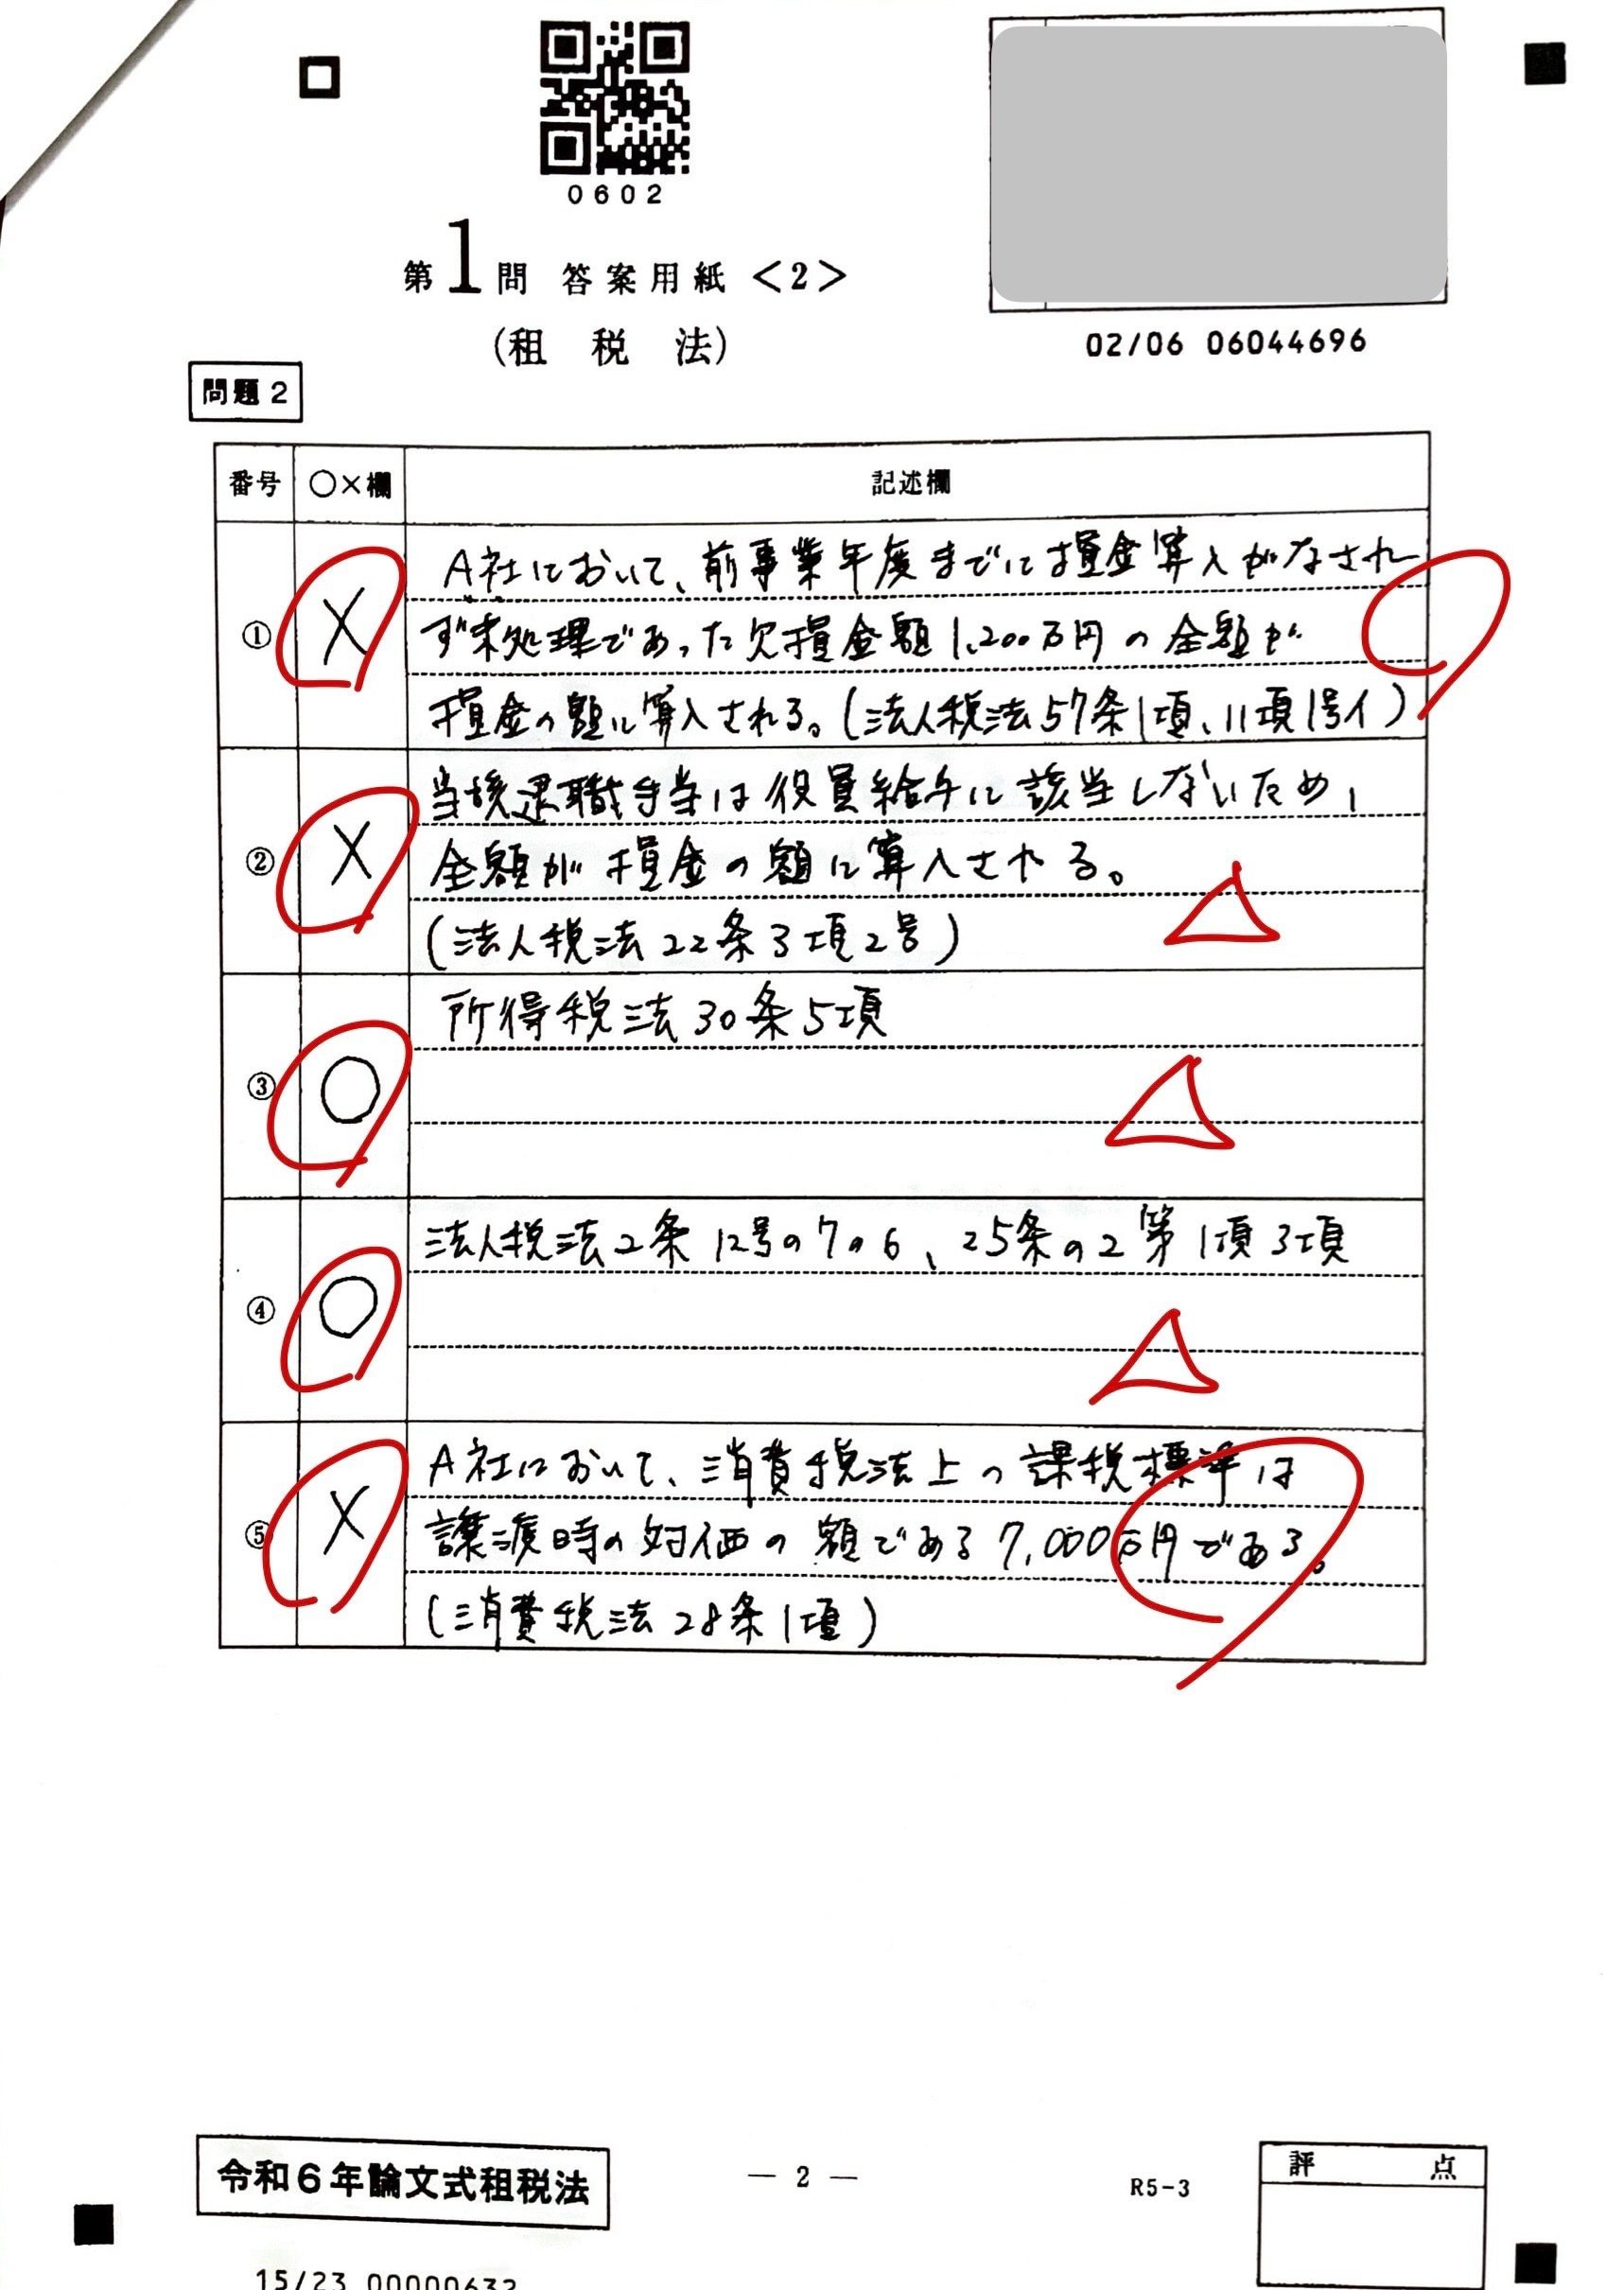 0602
第1問 答案用紙<2>
(租税法)
02/06 06044696
問題2
番号 ○×欄 記述欄
① × A社において、前事業年度までに損金算入がなされ
ず未処理であった欠損金額1,200万円の全額が
損金の額に算入される。(法人税法57条1項、11項1号イ)
② × 当該退職手当は役員給与に該当しないため、
全額が損金の額に算入される。
(法人税法22条3項2号)
③ ○ 所得税法30条5項
④ ○ 法人税法2条12号の7の6、25条の2第1項3項
⑤ × A社において、消費税法上の課税標準は
譲渡時の対価の額である7,000万円である。
(消費税法28条1項)
令和6年論文式租税法
― 2 ―
R5-3
評点
15/23 00000632